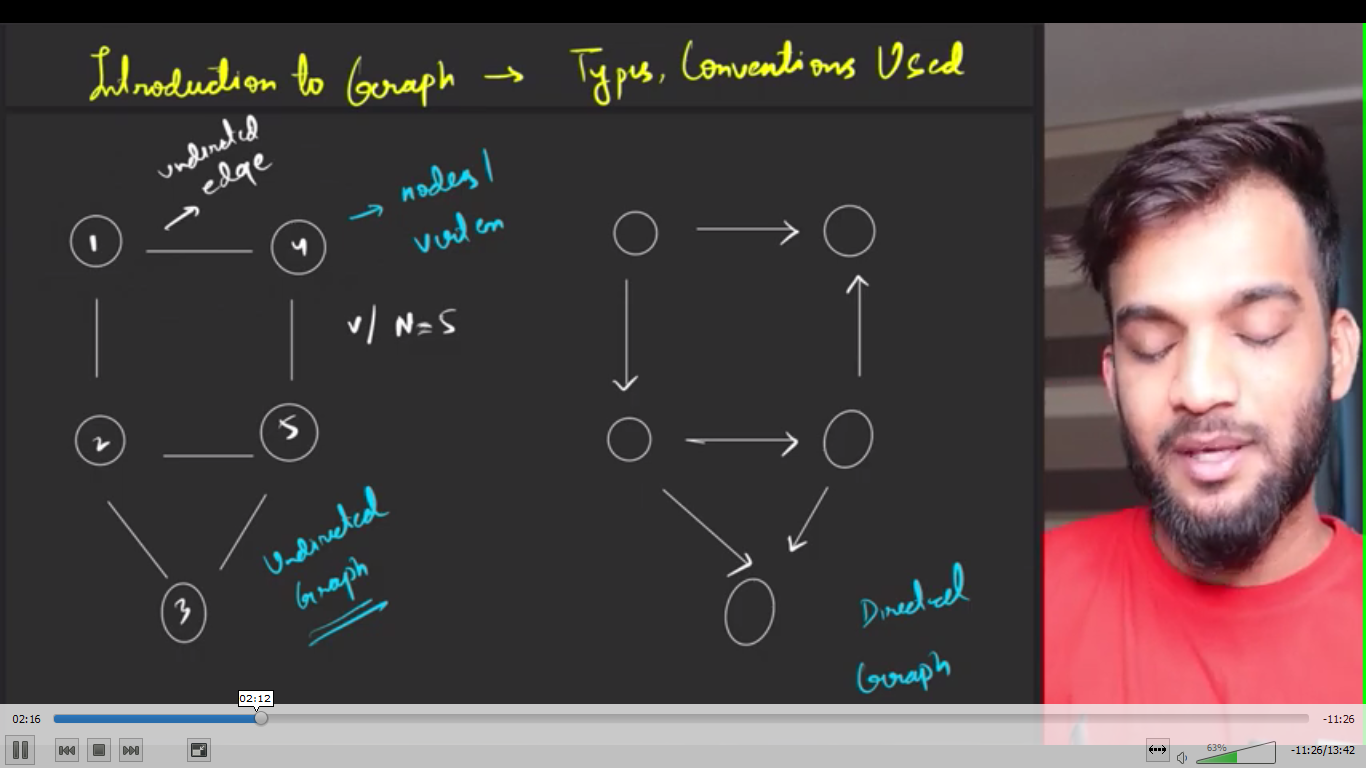 Introduction to Graph → Types, Conventions Used
undirected
edge
nodes /
1
4
V / N = 5
2
5
3
Undirected
Graph
Directed
Graph
02:12
02:16
-11:26
63%
-11:26/13:42